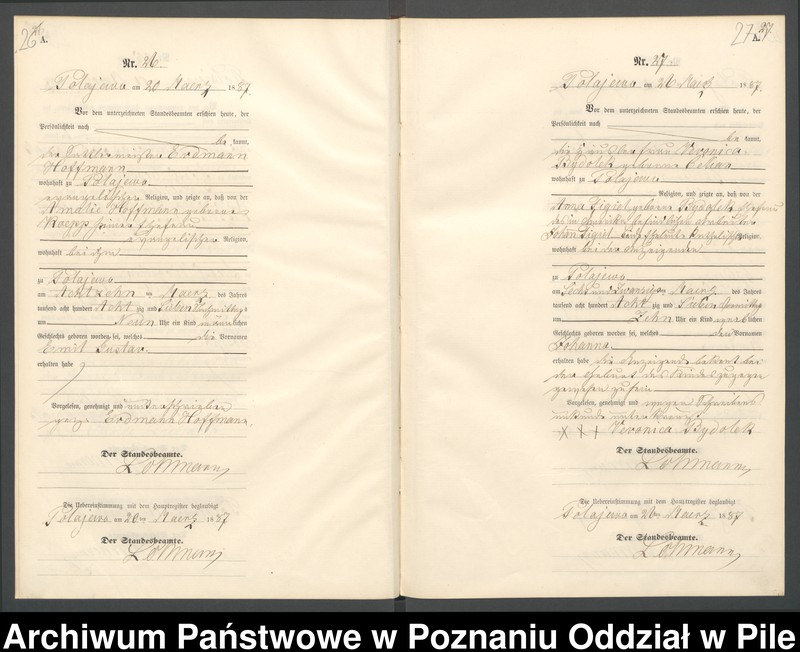 26
A.
Nr. 26.
Polajewo am 20 Maerz 1887
Vor dem unterzeichneten Standesbeamten erschien heute, der
Persönlichkeit nach
be kannt,
der Erdmann
Hoffmann
wohnhaft zu Polajewo
evangelischer Religion, und zeigte an, daß von der
Amalie Hoffmann geborene
Koepp seiner Ehefrau
evangelischer Religion,
wohnhaft bei ihm
zu Polajewo
am Achtzehn ten Maerz des Jahres
tausend acht hundert Acht zig und Sieben Nachmittags
um Neun Uhr ein Kind männlichen
Geschlechts geboren worden sei, welches die Vornamen
Emil Gustav
erhalten habe
Vorgelesen, genehmigt und unterschrieben
gez. Erdmann Hoffmann.
Der Standesbeamte.
Lohmann
Die Uebereinstimmung mit dem Hauptregister beglaubigt
Polajewo am 20ten Maerz 1887
Der Standesbeamte.
Lohmann
27
27
A.
Nr. 27.
Polajewo am 26 Maerz 1887.
Vor dem unterzeichneten Standesbeamten erschien heute, der
Persönlichkeit nach
be kannt,
die Veronica
Bydolek geborene
wohnhaft zu Polajewo
Religion, und zeigte an, daß von der
Anna Figiel geborene Bydolek Ehefrau
des in Amerika befindlichen Arbeiters
Johann Figiel katholischer Religion,
wohnhaft bei der Anzeigenden
zu Polajewo
am Sechs und Zwanzigsten Maerz des Jahres
tausend acht hundert Acht zig und Sieben Vormittags
um Zehn Uhr ein Kind weiblichen
Geschlechts geboren worden sei, welches den Vornamen
Johanna
erhalten habe die Anzeigende bekennt bei
der Geburt des Kindes zugegen
gewesen zu sein
Vorgelesen, genehmigt und wegen Schreibens
unkunde unterkreuzt
x x x Veronica Bydolek
Der Standesbeamte.
Lohmann
Die Uebereinstimmung mit dem Hauptregister beglaubigt
Polajewo am 26ten Maerz 1887
Der Standesbeamte.
Lohmann
Archiwum Państwowe w Poznaniu Oddział w Pile